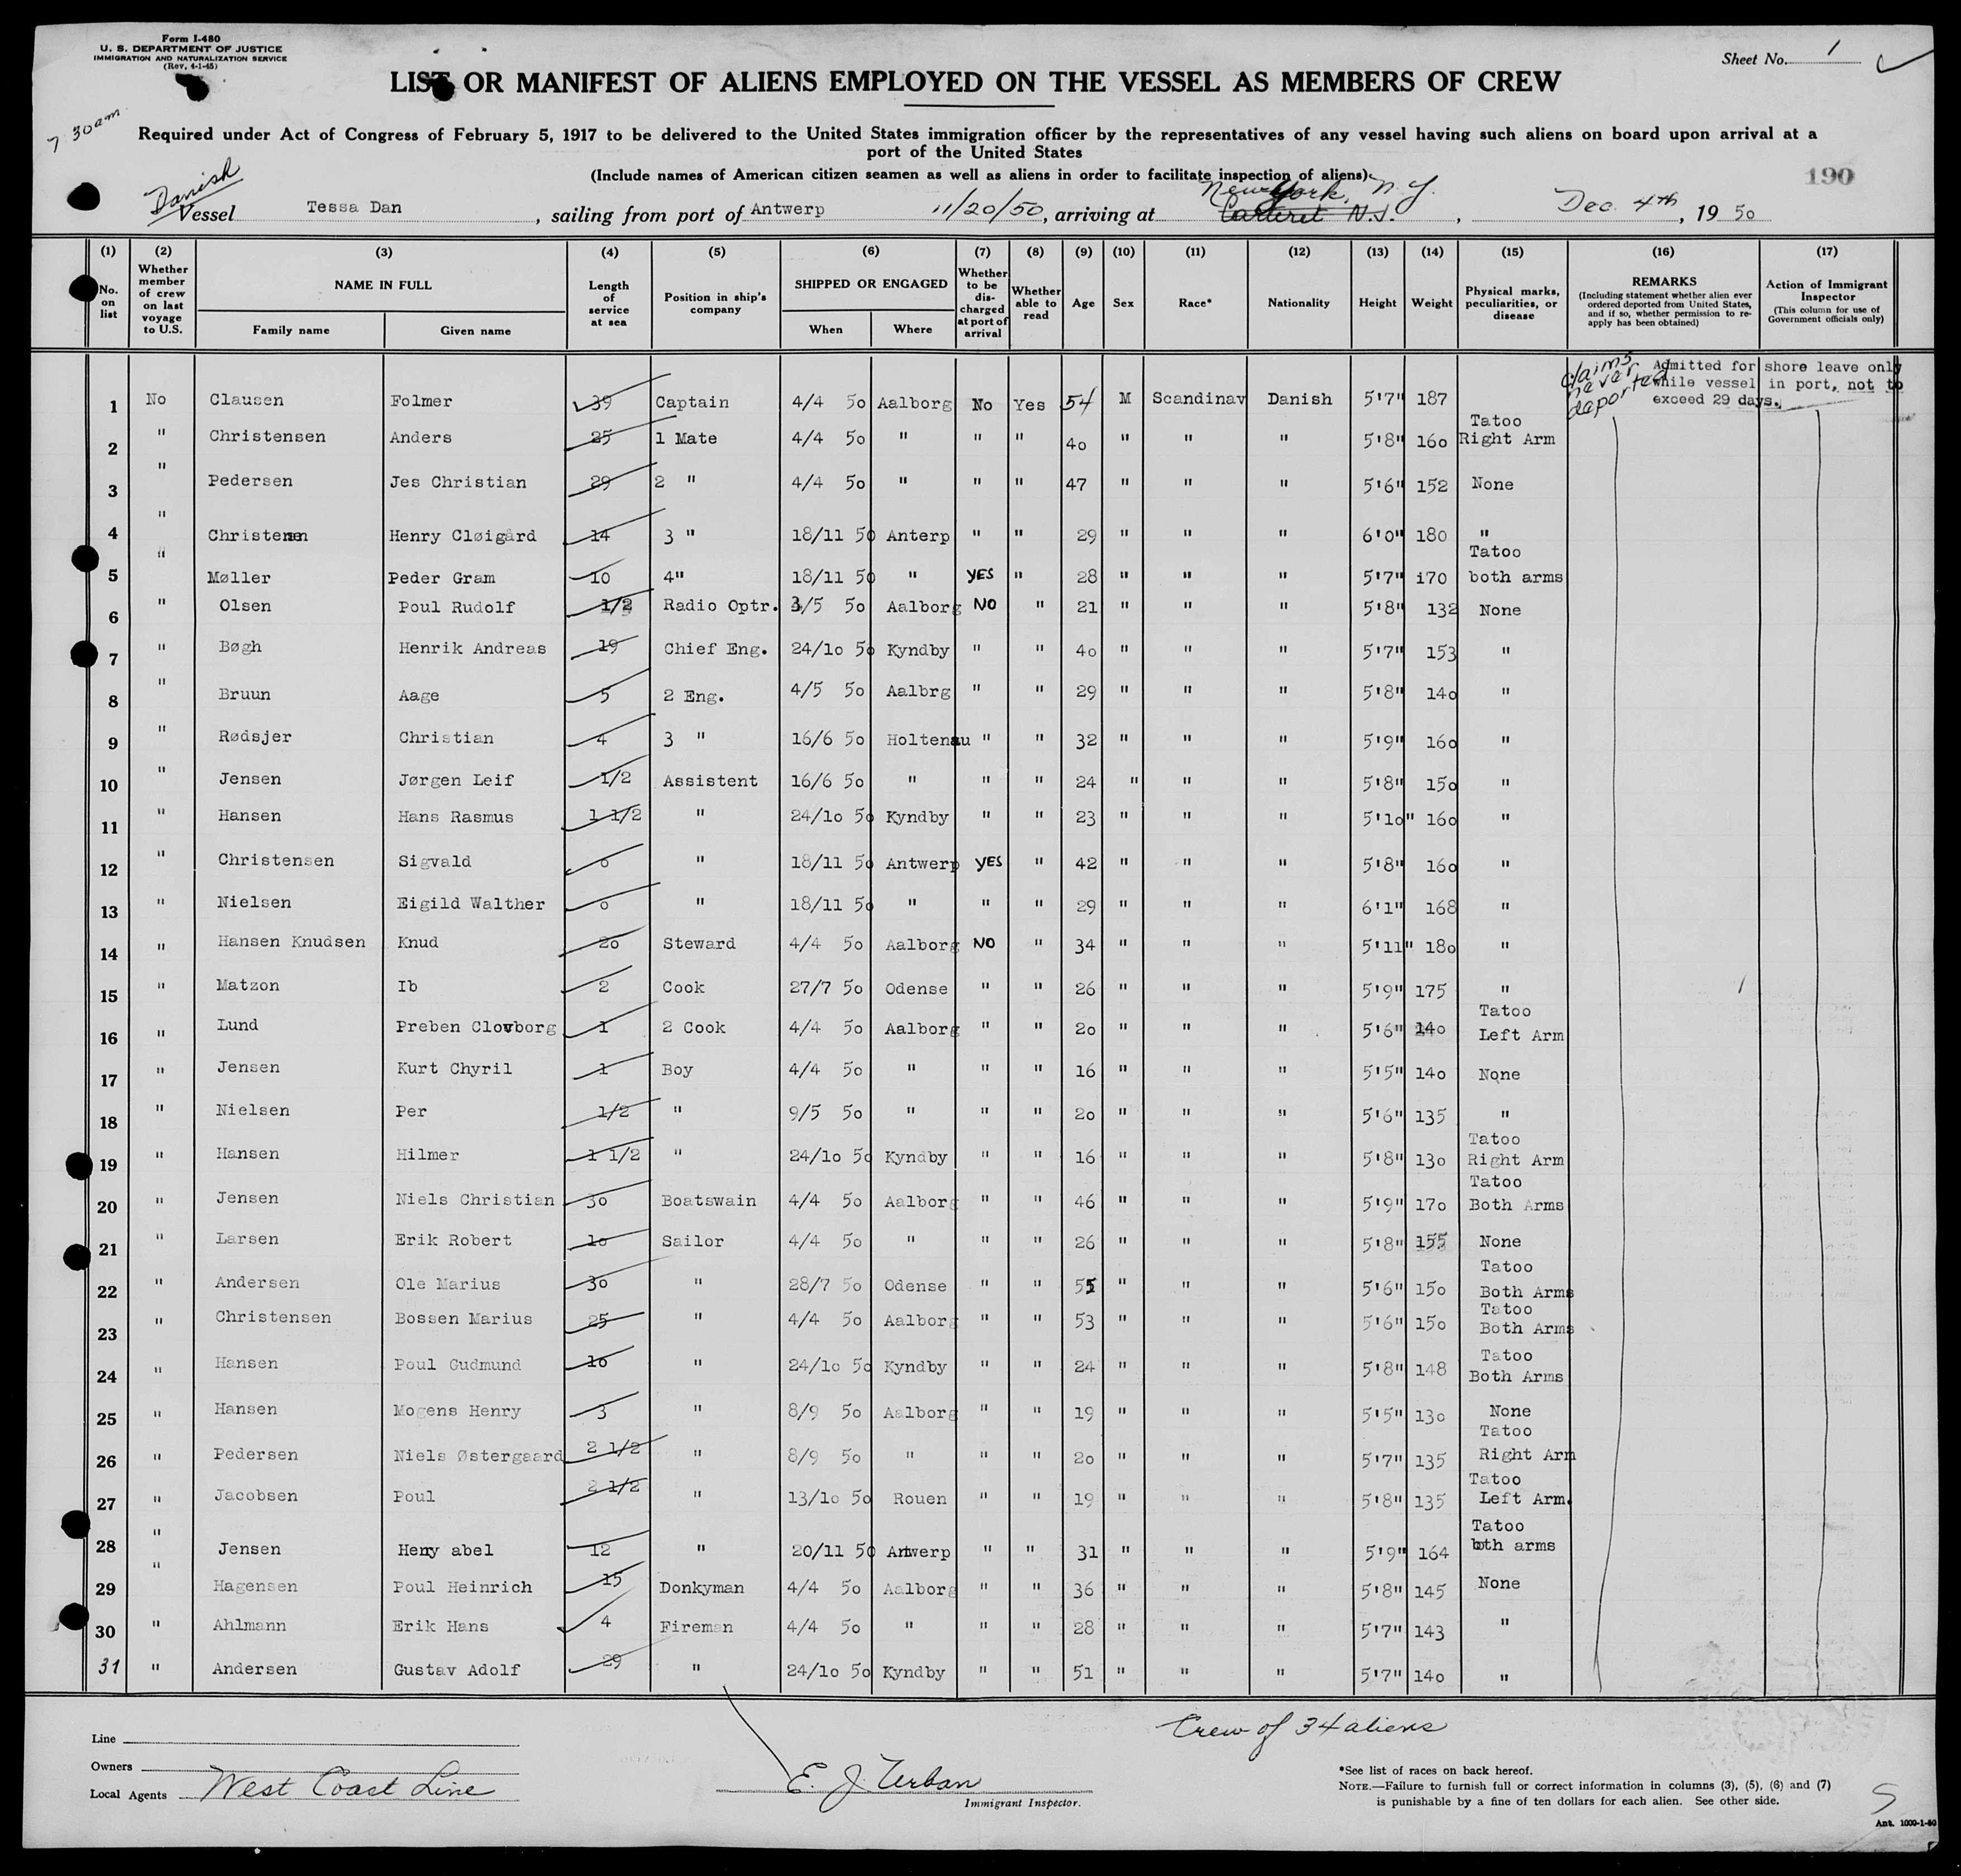 Form I-480
U. S. DEPARTMENT OF JUSTICE
IMMIGRATION AND NATURALIZATION SERVICE
(Rev. 4-1-45)
Sheet No. 1
LIST OR MANIFEST OF ALIENS EMPLOYED ON THE VESSEL AS MEMBERS OF CREW
7 30am
Required under Act of Congress of February 5, 1917 to be delivered to the United States immigration officer by the representatives of any vessel having such aliens on board upon arrival at a
port of the United States
(Include names of American citizen seamen as well as aliens in order to facilitate inspection of aliens)
190
Danish
New York, N.Y.
Vessel Tessa Dan, sailing from port of Antwerp 11/20/50, arriving at Carteret N.J., Dec. 4th, 19 50
(1) (2) (3) (4) (5) (6) (7) (8) (9) (10) (11) (12) (13) (14) (15) (16) (17)
No. on list
Whether member of crew on last voyage to U.S.
NAME IN FULL
Family name Given name
Length of service at sea
Position in ship's company
SHIPPED OR ENGAGED
When Where
Whether to be discharged at port of arrival
Whether able to read
Age Sex Race* Nationality Height Weight
Physical marks, peculiarities, or disease
REMARKS
(Including statement whether alien ever ordered deported from United States, and if so, whether permission to reapply has been obtained)
Action of Immigrant Inspector
(This column for use of Government officials only)
claims never deported
Admitted for shore leave only
while vessel in port, not to
exceed 29 days.
1 No Clausen Folmer 39 Captain 4/4 50 Aalborg No Yes 54 M Scandinav Danish 5'7" 187
2 " Christensen Anders 25 1 Mate 4/4 50 " " " 40 " " " 5'8" 160 Tatoo Right Arm
3 " Pedersen Jes Christian 29 2 " 4/4 50 " " " 47 " " " 5'6" 152 None
4 " Christensen Henry Cløigård 14 3 " 18/11 50 Anterp " " 29 " " " 6'0" 180 "
5 " Møller Peder Gram 10 4" 18/11 50 " YES " 28 " " " 5'7" 170 Tatoo both arms
6 " Olsen Poul Rudolf 1/2 Radio Optr. 3/5 50 Aalborg NO " 21 " " " 5'8" 132 None
7 " Bøgh Henrik Andreas 19 Chief Eng. 24/10 50 Kyndby " " 40 " " " 5'7" 153 "
8 " Bruun Aage 5 2 Eng. 4/5 50 Aalbrg " " 29 " " " 5'8" 140 "
9 " Rødsjer Christian 4 3 " 16/6 50 Holtenau " " 32 " " " 5'9" 160 "
10 " Jensen Jørgen Leif 1/2 Assistent 16/6 50 " " " 24 " " " 5'8" 150 "
11 " Hansen Hans Rasmus 1 1/2 " 24/10 50 Kyndby " " 23 " " " 5'10" 160 "
12 " Christensen Sigvald 0 " 18/11 50 Antwerp YES " 42 " " " 5'8" 160 "
13 " Nielsen Eigild Walther 0 " 18/11 50 " " " 29 " " " 6'1" 168 "
14 " Hansen Knudsen Knud 20 Steward 4/4 50 Aalborg NO " 34 " " " 5'11" 180 "
15 " Matzon Ib 2 Cook 27/7 50 Odense " " 26 " " " 5'9" 175 "
16 " Lund Preben Clovborg 1 2 Cook 4/4 50 Aalborg " " 20 " " " 5'6" 140 Tatoo Left Arm
17 " Jensen Kurt Chyril 1 Boy 4/4 50 " " " 16 " " " 5'5" 140 None
18 " Nielsen Per 1/2 " 9/5 50 " " " 20 " " " 5'6" 135 "
19 " Hansen Hilmer 1 1/2 " 24/10 50 Kyndby " " 16 " " " 5'8" 130 Tatoo Right Arm
20 " Jensen Niels Christian 30 Boatswain 4/4 50 Aalborg " " 46 " " " 5'9" 170 Tatoo Both Arms
21 " Larsen Erik Robert 10 Sailor 4/4 50 " " " 26 " " " 5'8" 155 None
22 " Andersen Ole Marius 30 " 28/7 50 Odense " " 55 " " " 5'6" 150 Tatoo Both Arms
23 " Christensen Bossen Marius 25 " 4/4 50 Aalborg " " 53 " " " 5'6" 150 Tatoo Both Arms
24 " Hansen Poul Gudmund 10 " 24/10 50 Kyndby " " 24 " " " 5'8" 148 Tatoo Both Arms
25 " Hansen Mogens Henry 3 " 8/9 50 Aalborg " " 19 " " " 5'5" 130 None
26 " Pedersen Niels Østergaard 2 1/2 " 8/9 50 " " " 20 " " " 5'7" 135 Tatoo Right Arm
27 " Jacobsen Poul 2 1/2 " 13/10 50 Rouen " " 19 " " " 5'8" 135 Tatoo Left Arm.
28 " Jensen Henry abel 12 " 20/11 50 Antwerp " " 31 " " " 5'9" 164 Tatoo both arms
29 " Hagensen Poul Heinrich 15 Donkyman 4/4 50 Aalborg " " 36 " " " 5'8" 145 None
30 " Ahlmann Erik Hans 4 Fireman 4/4 50 " " " 28 " " " 5'7" 143 "
31 " Andersen Gustav Adolf 29 " 24/10 50 Kyndby " " 51 " " " 5'7" 140 "
Crew of 34 aliens
Line
Owners
Local Agents West Coast Line
E. J. Urban
Immigrant Inspector.
*See list of races on back hereof.
NOTE.—Failure to furnish full or correct information in columns (3), (5), (6) and (7)
is punishable by a fine of ten dollars for each alien. See other side.
Ant. 1000-1-50